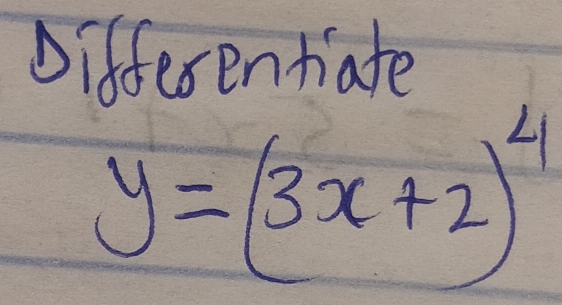 Differentiate
y = (3x + 2)^4